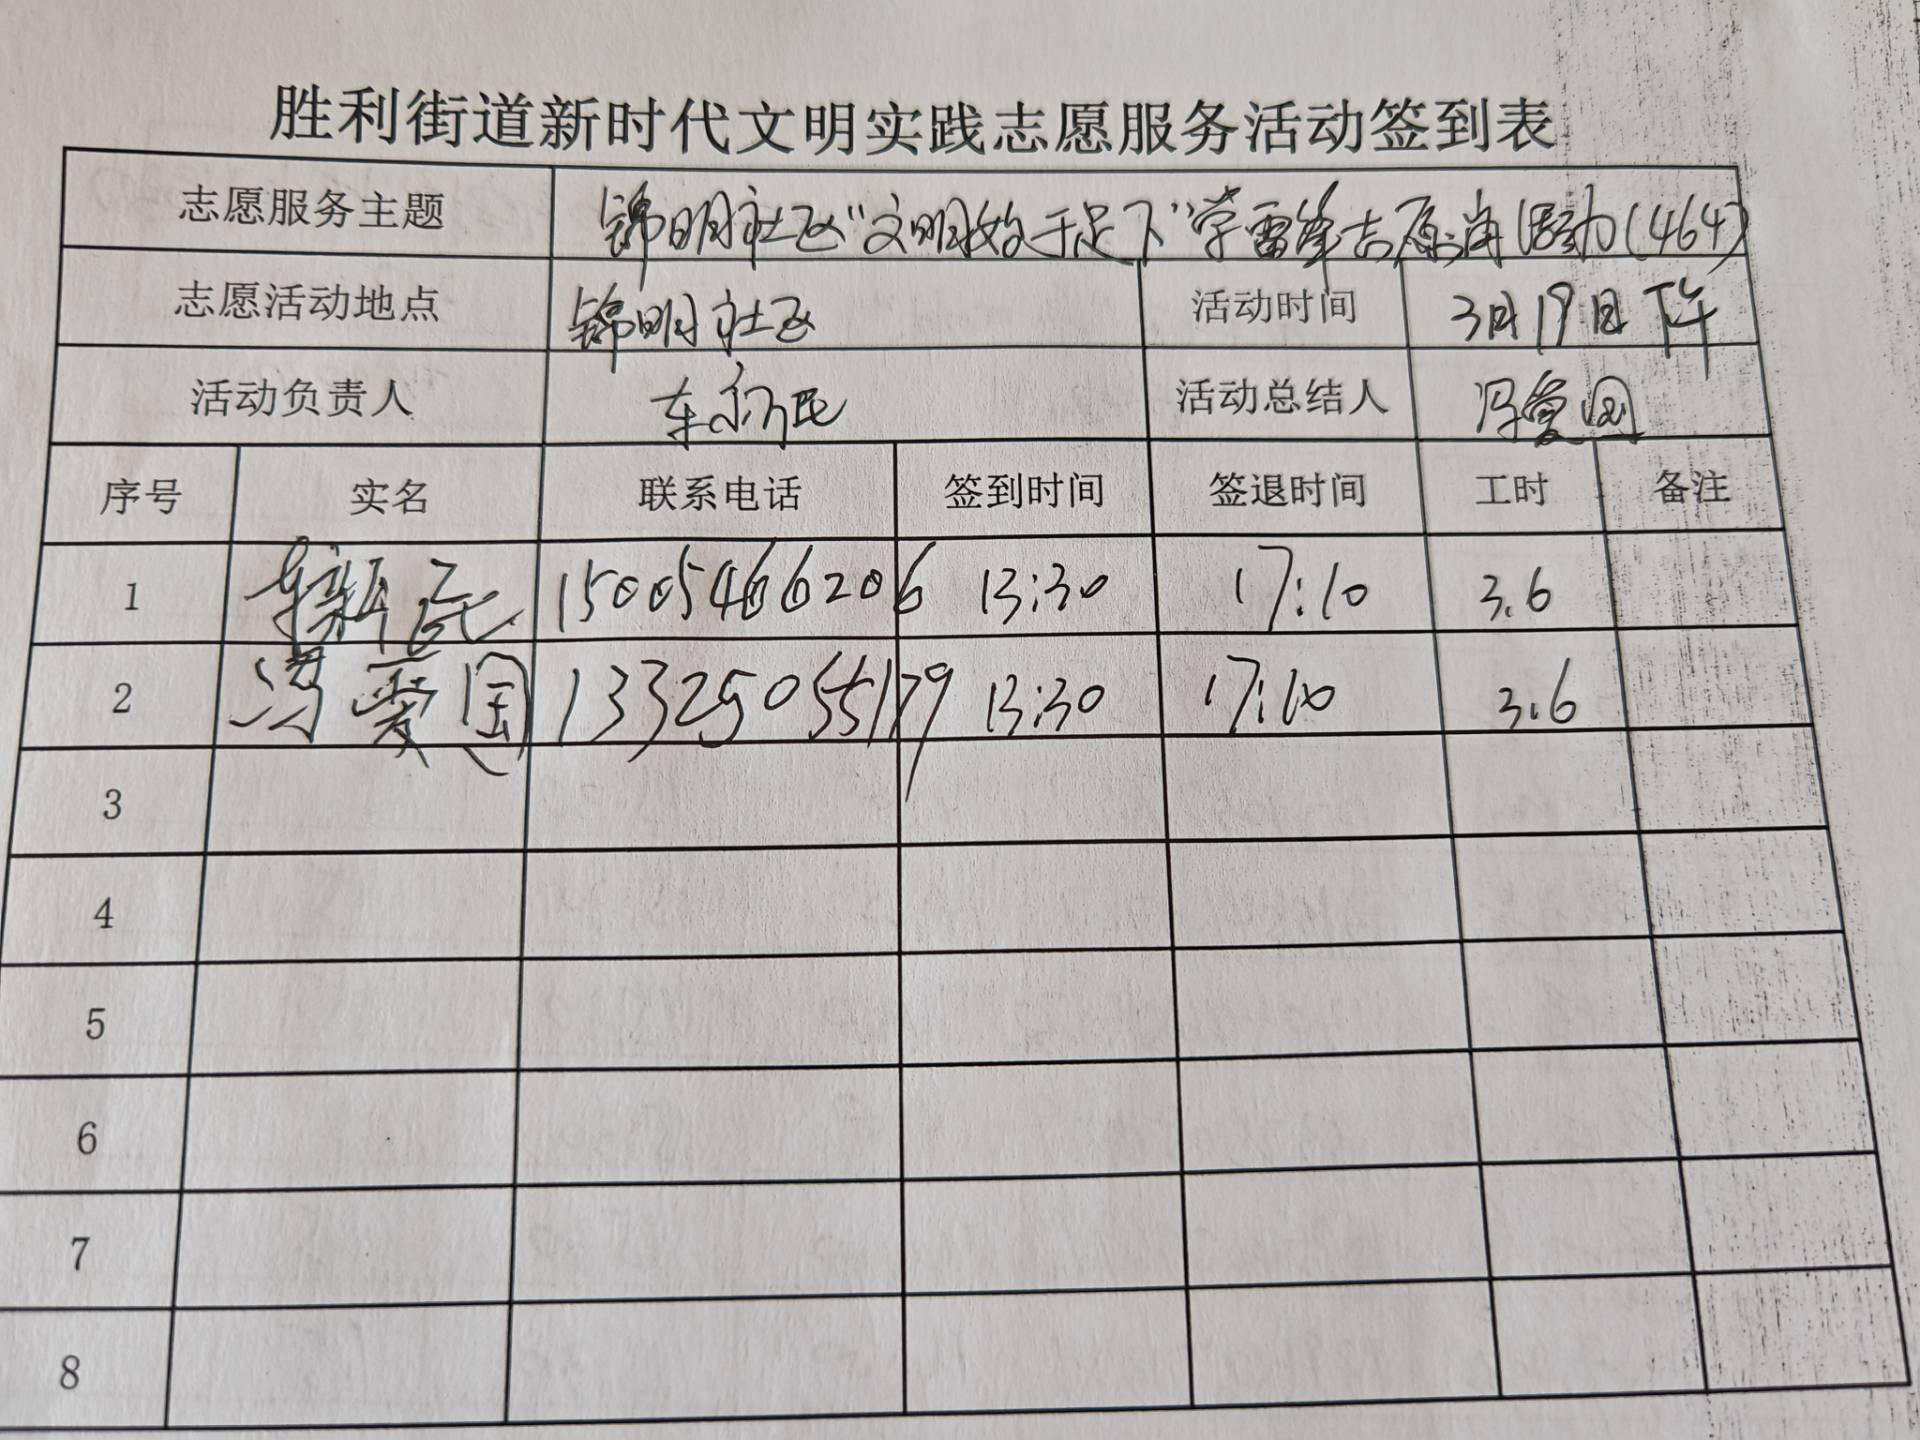 胜利街道新时代文明实践志愿服务活动签到表
志愿服务主题 锦明社区“文明始于足下”学雷锋志愿者活动(464)
志愿活动地点 锦明社区 活动时间 3月19日下午
活动负责人 车新民 活动总结人 冯爱国
序号 实名 联系电话 签到时间 签退时间 工时 备注
1 车新民 15005466206 13:30 17:10 3.6
2 冯爱国 13325055179 13:30 17:10 3.6
3
4
5
6
7
8